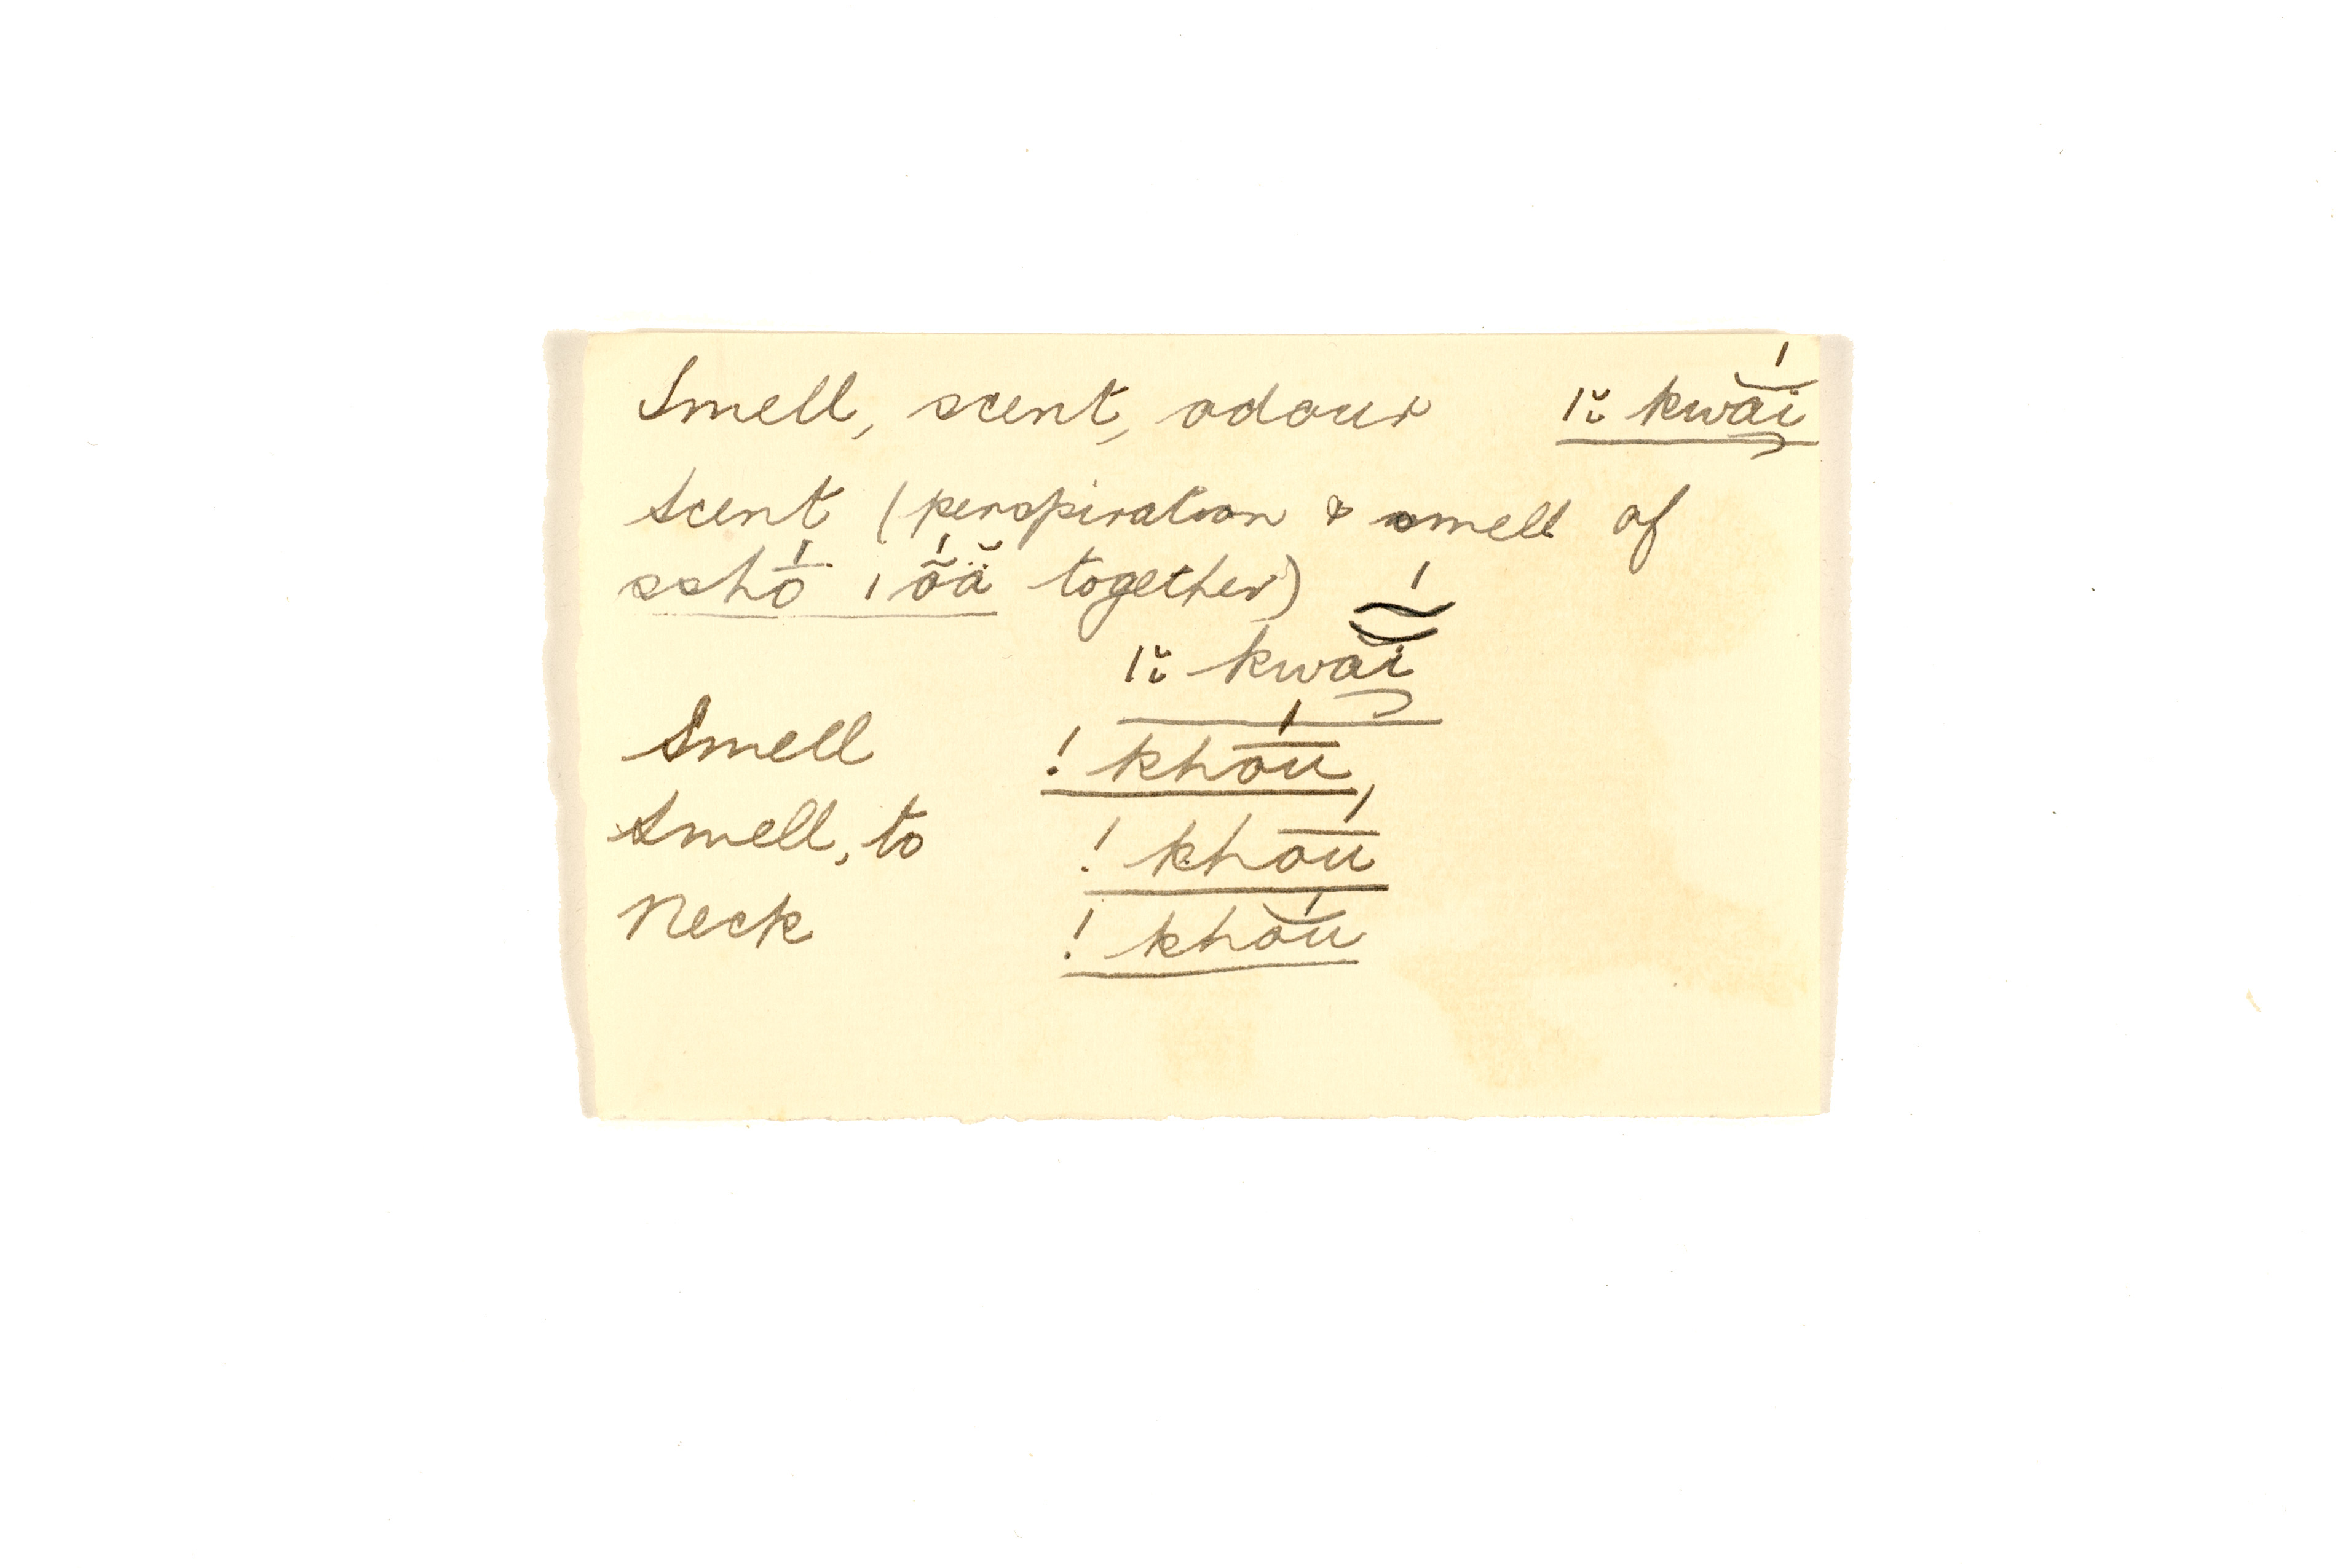 Smell, scent, odour ǀĭ̤ kwắi
Scent (perspiration & smell of
sshṓ ǀṍä̆ together)
ǀĭ̤ kwãí
Smell ! khṓu,
Smell, to ! khōú
Neck ! khŏ́u